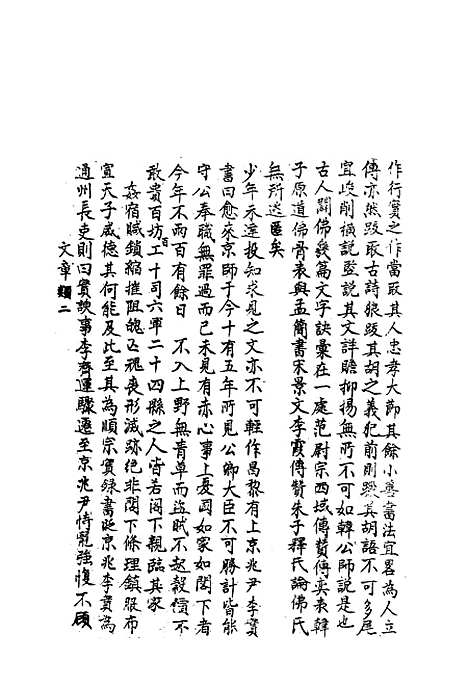 作行實之作當取其人忠孝大節其餘小善書法宜畧為人立
傳亦然跋取古詩狼跋其胡之義犯前則躐其胡語不可多尾
宜峻削橫說竪說其文詳贍抑揚無所不可如韓公師說是也
古人闢佛幾篇文字訣彙在一處范蔚宗西域傳贊傅奕表韓
子原道佛骨表與孟簡書宋景文李蔚傳贊朱子釋氏論佛氏
無所逃匿矣
少年未達投知求見之文亦不可輕作昌黎有上京兆尹李實
書曰愈來京師于今十有五年所見公卿大臣不可勝計皆能
守公奉職無罪過而已未見有赤心事上憂國如家如閣下者
今年不雨百有餘日 不入上野無青草而盜賊不起穀價不
敢貴百坊百工十司六軍二十四縣之人皆若閣下親臨其家
姦宿贓鎖縮摧阻魄亡魂喪形滅跡絕非閣下條理鎮服布
宣天子威德其何能及此至其為順宗實錄書貶京兆李實為
通州長吏則曰實諛事李齊運驟遷至京兆尹恃寵強愎不顧
文章類二